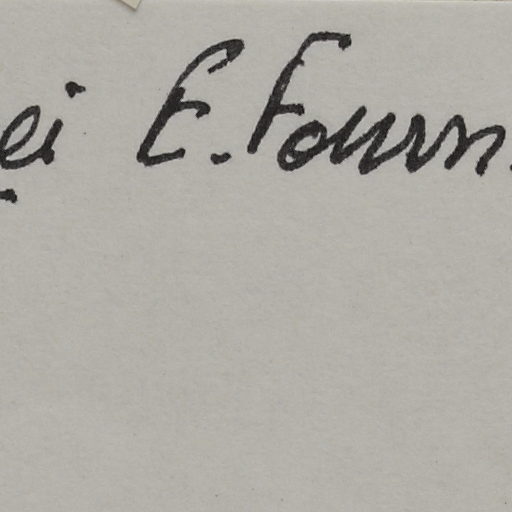 ei E. Fourn.